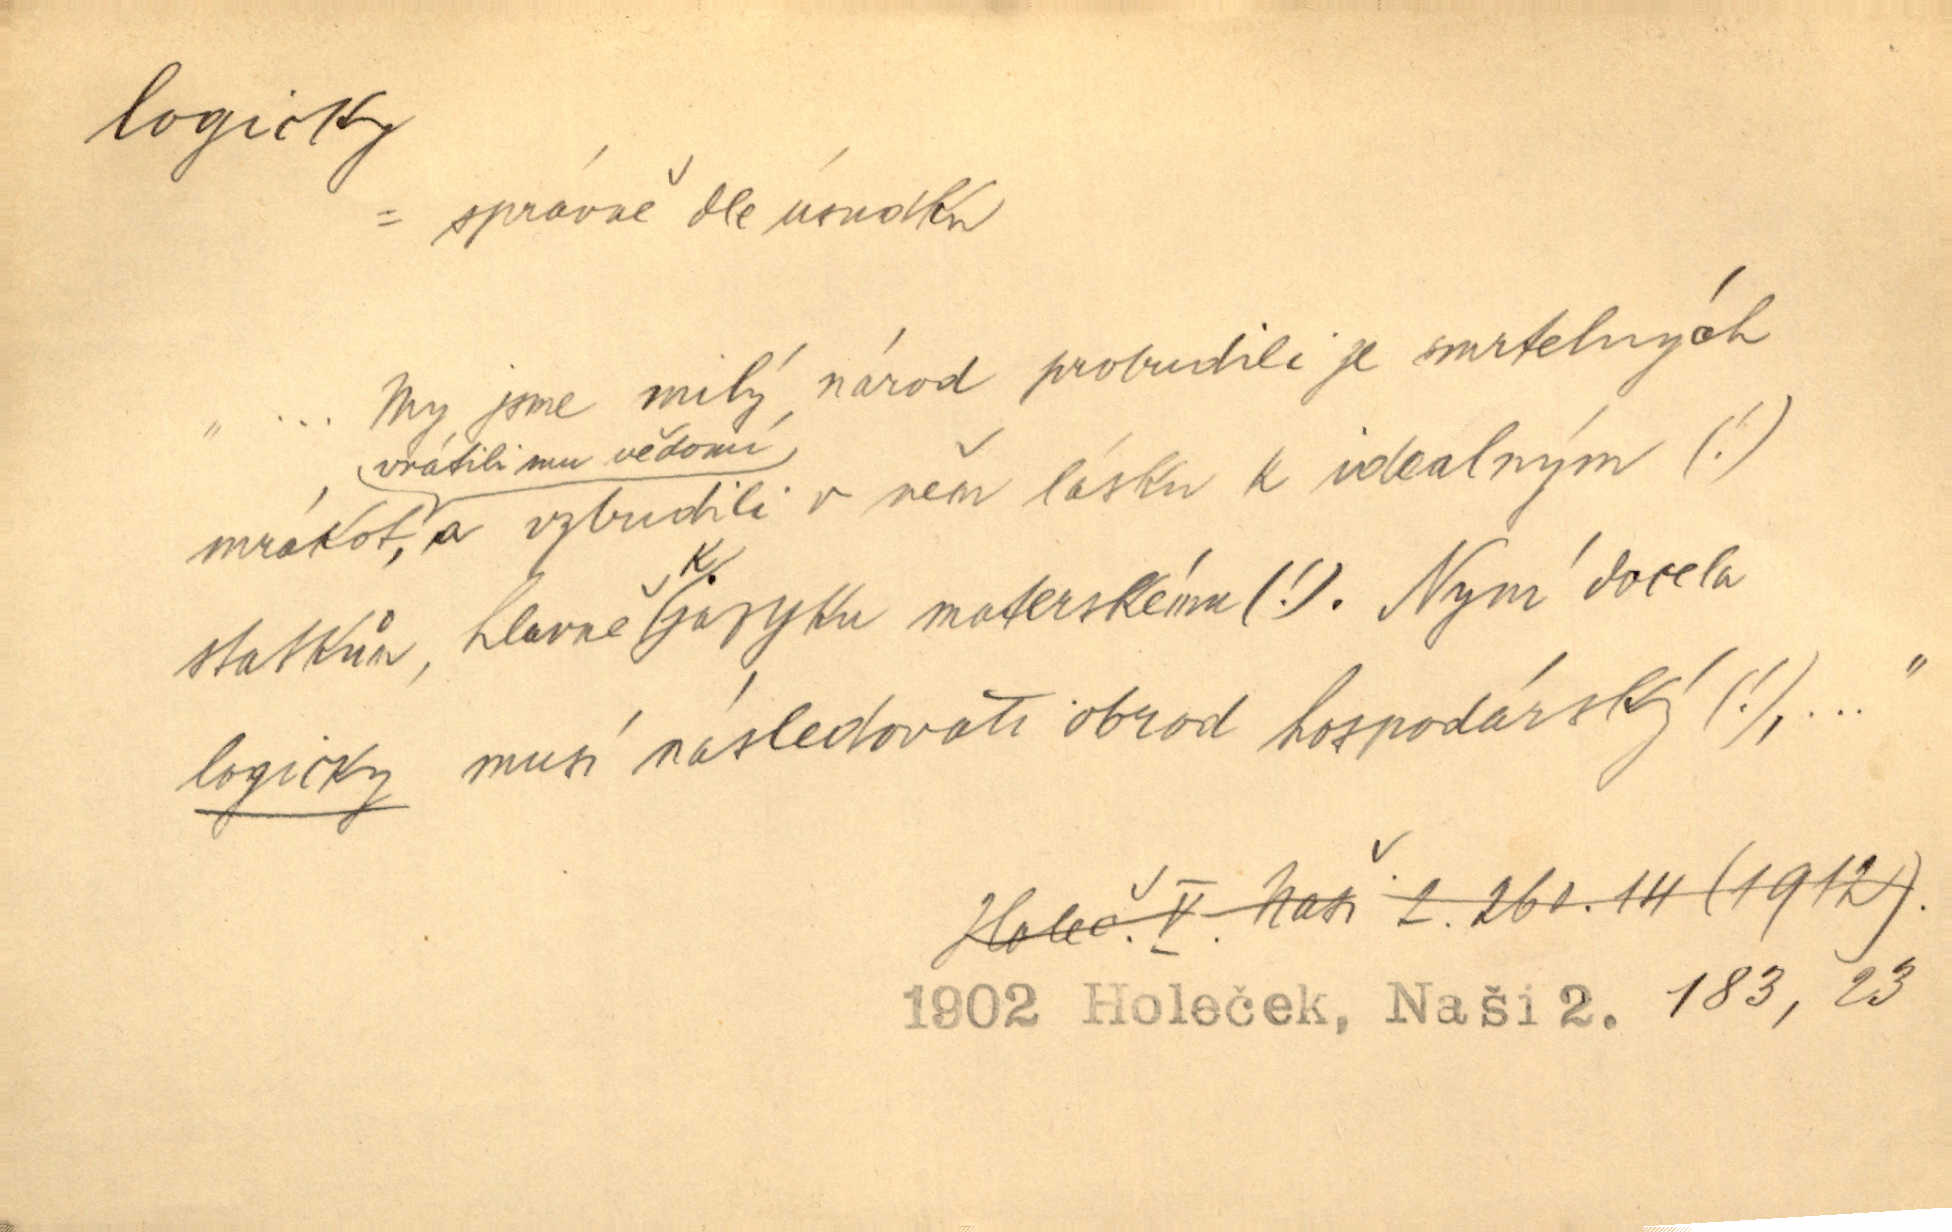 logicky
= správně dle úsudku
" ... My jsme milý národ probudili ze smrtelných
vrátili mu vědomí
mrákot, a vzbudili v něm lásku k idealným (!)
statkům, hlavně k jazyku materskému (!). Nyní docela
logicky musí následovati obrod hospodárský (!), ... "
Holeč. V. Naši 2. 260. 14 (1912).
1902 Holeček, Naši 2. 183, 23